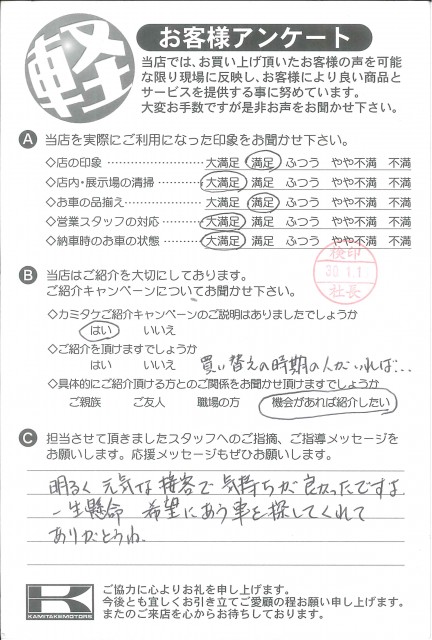 軽
お客様アンケート
当店では、お買い上げ頂いたお客様の声を可能
な限り現場に反映し、お客様により良い商品と
サービスを提供する事に努めています。
大変お手数ですが是非お声をお聞かせ下さい。
A 当店を実際にご利用になった印象をお聞かせ下さい。
◇店の印象 ………………… 大満足 満足 ふつう やや不満 不満
◇店内・展示場の清掃 ……… 大満足 満足 ふつう やや不満 不満
◇お車の品揃え……………… 大満足 満足 ふつう やや不満 不満
◇営業スタッフの対応 ……… 大満足 満足 ふつう やや不満 不満
◇納車時のお車の状態 ……… 大満足 満足 ふつう やや不満 不満
検印
30.1.1
社長
B 当店はご紹介を大切にしております。
ご紹介キャンペーンについてお聞かせ下さい。
◇カミタケご紹介キャンペーンのご説明はありましたでしょうか
はい いいえ
◇ご紹介を頂けますでしょうか
はい いいえ 買い替えの時期の人がいれば...
◇具体的にご紹介頂ける方とのご関係をお聞かせ頂けますでしょうか
ご親族 ご友人 職場の方 機会があれば紹介したい
C 担当させて頂きましたスタッフへのご指摘、ご指導メッセージを
お願いします。応援メッセージもぜひお願いします。
明るく 元気な接客で 気持ちが良かったですよ
一生懸命 希望にあう車を探してくれて
ありがとうね。
K
KAMITAKEMOTORS
ご協力に心よりお礼を申し上げます。
今後とも宜しくお引き立てご愛顧の程お願い申し上げます。
またのご来店を心からお待ちしております。